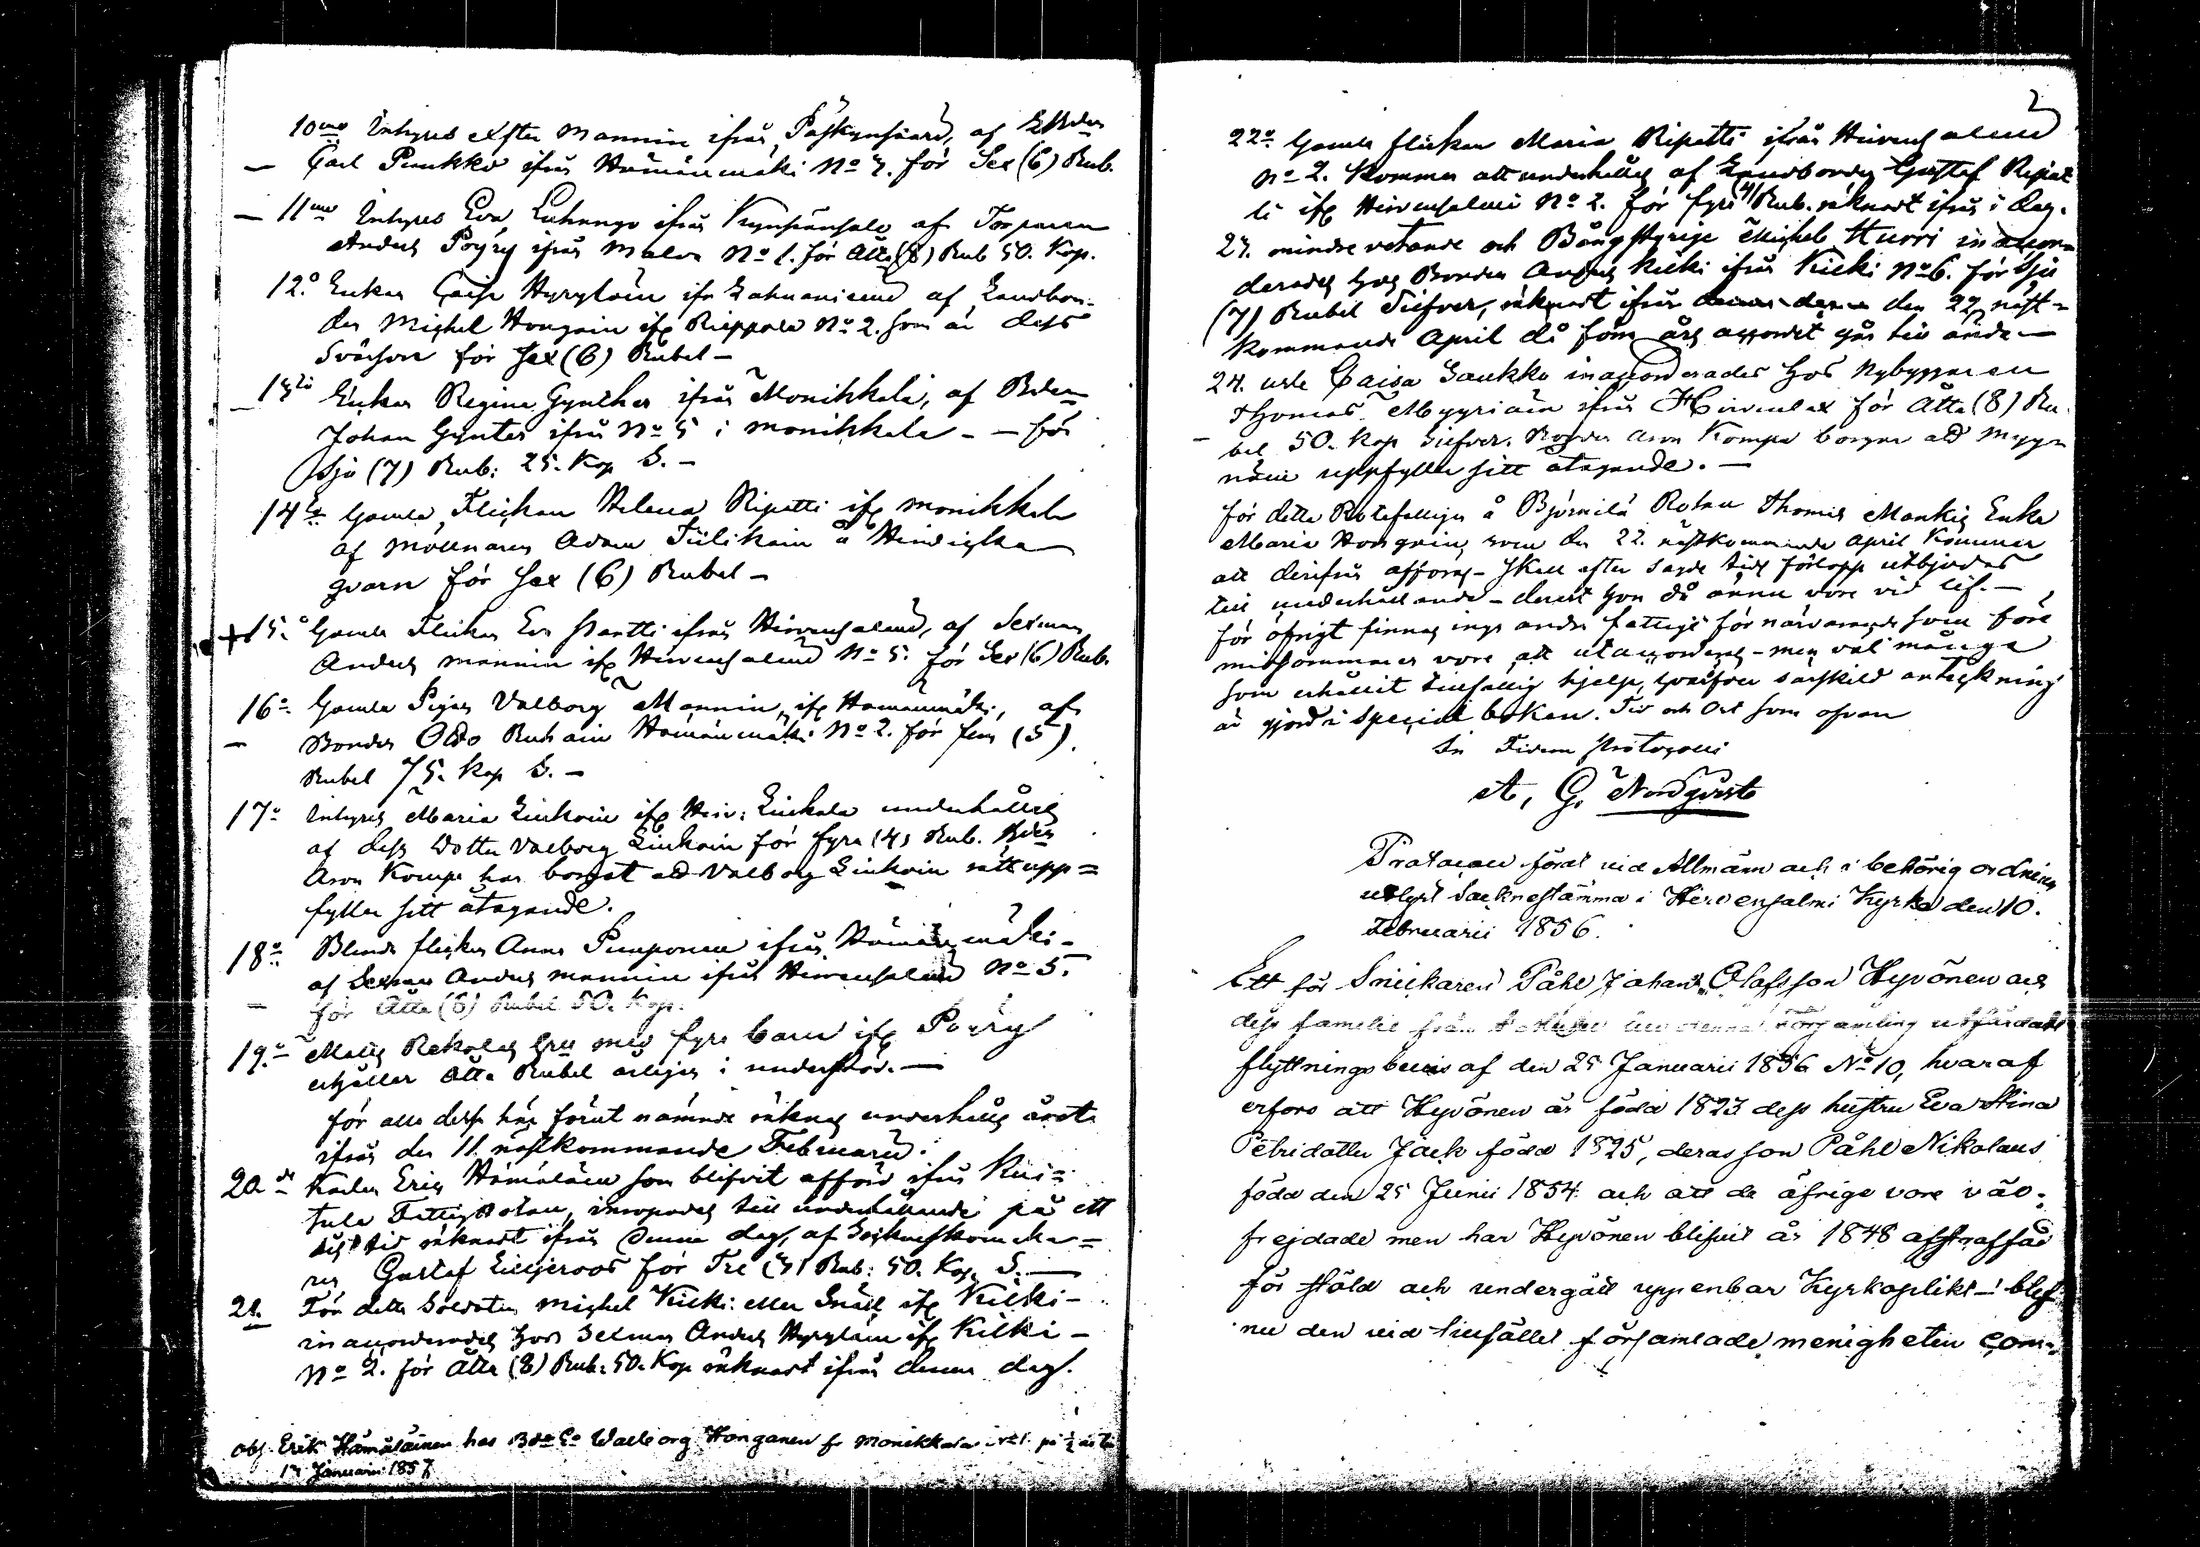 10mo Inhyses Esther Mannin ifrån Paskynsaari, af LBdn
Carl Puukko ifrån Hämänmäki No 7. för Sex (6) Rub.
11mo Inhyses Eva Luhange ifrån Kyynsänsalo af Torparen
Anders Pöyry ifrån Malva No 1. för Åtta (8) Rub 50. Kop.
12o Enkan Caisa Hyryläin ifrn Lahnaniemi af Landbon-
den Michel Hongain ifrn Rieppola No 2. som är dess
Svärson för Sex (6) Rubel —
13tio Enkan Regina Gynther ifrån Monikkala, af Bden
Johan Gynter ifrån No 5 i Monikkala — för
Sju (7) Rub: 25. Kop S. —
14to Gamla Flickan Helena Ripatti ifrn Monikkala
af Mölnaren Adam Tiilikain å
qvarn för Sex (6) Rubel —
15.o Gamla Flickan Eva Partti ifrån Hirvensalmi, af Sexman
Anders Mannin ifrn Hirvensalmi No 5. för Sex (6) Rub.
16o Gamla Pigan Valborg Mannin, ifrn Hämänmäki, af
Bonden Otto Ruhain Hämänmäki No 2. för fem (5)
Rubel 75. Kop S. —
17o Inhyses Maria Liukoin ifrn Hirv: Liukala underhålles
af dess Dotter Valborg Liukoin för fyra (4) Rub. Bden
Aron Kompa har borgat att Valborg Liukoin rätt upp=
fyller sitt åtagande.
18o Blinda flickan Anna Pimponen ifrån Hämänmäki —
af Sexman Anders Mannin ifrån Hirvensalmi No 5.
för Åtta (8) Rubel 50. Kop.
19o Matts Rekolas Enka med fyra barn ifrn Pöyry
erhåller Åtta Rubel årligen i understöd. —
för alla dessa här förut nämnde räknas underhålls året
ifrån den 11 nästkommande Februarii.
20de Karlen Eric Hämäläin som blifvit afförd ifrån Kui=
tula Fattig Rotan, inropades till underhållande på ett
års tid räknadt ifrån denna dag, af Socknskomaka=
ren Gustaf Liljeroos för Tre (3) Rub: 50. Kop. S. —
21. För detta Soldaten Michel Kilki eller Snäll ifrn Kilki —
inaccorderades hos Sexman Anders Hyryläin ifrn Kilki —
No 2. för Åtta (8) Rub: 50. Kop räknadt ifrån denna dag.
Obs. Erik Hämäläinen hos Bde Eo Walborg Honganen fr Monikkala
13 Januarii 1857
2
22o Gamla flickan Maria Ripatti ifrån Hirvensalmi
No 2. Kommer att underhållas af Landbonden Gustaf Ripat
ti ifrn Hirvensalmi No 2. för fyra (4) Rub. räknadt ifrån i dag.
23. mindre vetande och Bångstyrige Michel Hurri inaccor=
derades hos Bonden Anders Kilki ifrån Kilki No 6. för Sju
(7) Rubel Silfver, räknadt ifrån den 22 näst=
kommande April då förra års accordet går till ända —
24. usle Caisa Laukka inaccorderades hos Nybyggaren
Thomas Myyriäin ifrån Hirvenlax för Åtta (8) Ru
bel 50. Kop Silfver. Bonden Aron Kompa borgar att Myyri
räin uppfyller sitt åtagande. —
för detta Rotefattiges å Björnilä Rotan Thomas Mankis Enka
Maria Hongain, som den 22. nästkommande April kommer
att derifrån afföras — skall efter sagde tids förlopp utbjudas
till underhållande — derest hon då ännu vore vid lif. —
för öfrigt finnas inga andra fattiga för närvarande som före
midsommaren vore att utaccorderas — men väl många
som erhållit tillfällig hjelp, hvaröfver särskild anteckning
är gjord i Special boken. Tid och Ort som ofvan
In Fidem Protocolli
A. G. Nordqvist
Protocoll fördt vid Allmänn och i behörig ordning
utlyst Socknestämma i Hirvensalmi Kyrka den 10.
Februarii 1856.
Ett för Snickaren Påhl Johan Olafsson Hyvönen och
dess familie från församling utfärdadt
flyttningsbevis af den 25 Januarii 1856 No 10, hvaraf
erfors att Hyvönen är född 1823 dess hustru Eva Stina
Petridotter Jack född 1825, deras son Påhl Nikolaus
född den 25 Junii 1854. och att de öfrige vore väl=
frejdade men har Hyvönen blifvit år 1848 afstraffad
för stöld och undergått uppenbar Kyrkoplikt —! blef
nu den vid tillfället församlade menigheten com=